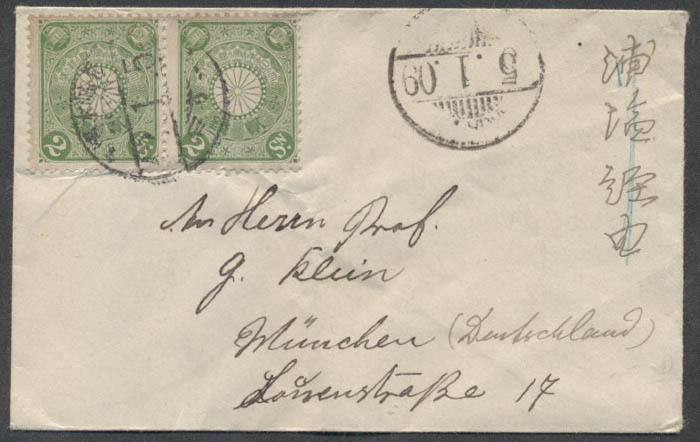 2
2
5.1.09
浦塩経由
An Herrn Prof.
G. Klein
München (Deutschland)
Löwenstraße 17